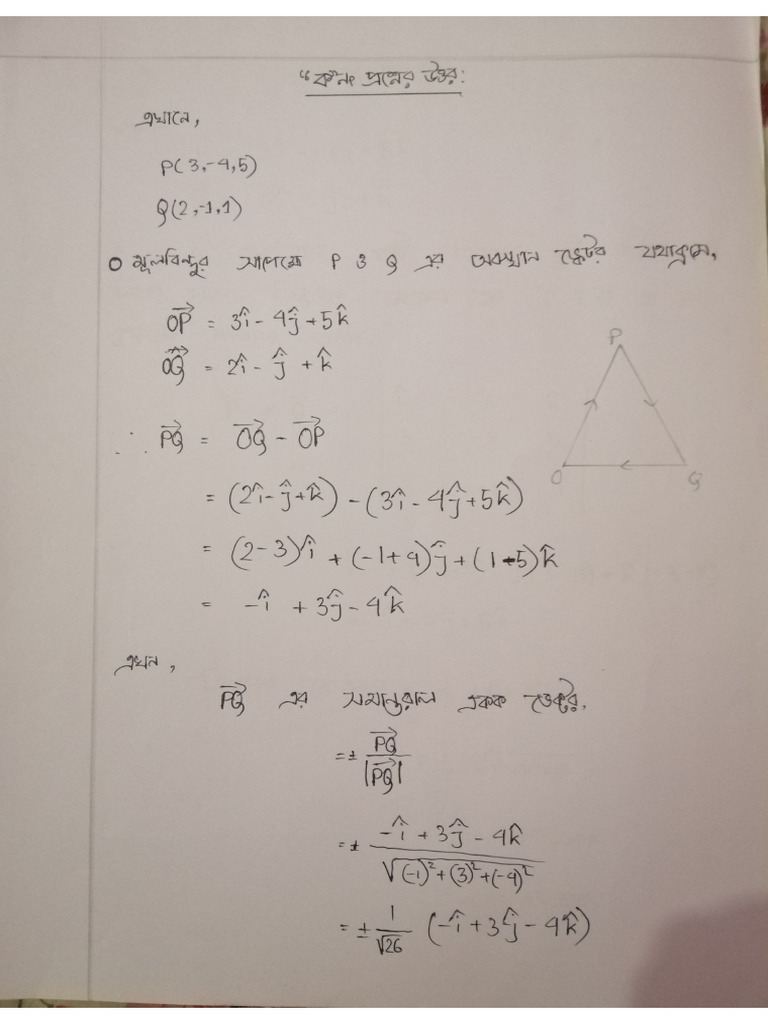 "ক" নং প্রশ্নের উত্তর:
এখানে,
P(3,-4,5)
Q(2,-1,1)
O মূলবিন্দুর সাপেক্ষে P ও Q এর অবস্থান ভেক্টর যথাক্রমে,
$\overrightarrow{OP} = 3\hat{i} - 4\hat{j} + 5\hat{k}$
$\overrightarrow{OQ} = 2\hat{i} - \hat{j} + \hat{k}$
P
O
Q
$\therefore \overrightarrow{PQ} = \overrightarrow{OQ} - \overrightarrow{OP}$
$= (2\hat{i} - \hat{j} + \hat{k}) - (3\hat{i} - 4\hat{j} + 5\hat{k})$
$= (2-3)\hat{i} + (-1+4)\hat{j} + (1-5)\hat{k}$
$= -\hat{i} + 3\hat{j} - 4\hat{k}$
এখন,
$\overrightarrow{PQ}$ এর সমান্তরাল একক ভেক্টর,
$= \pm \frac{\overrightarrow{PQ}}{|\overrightarrow{PQ}|}$
$= \pm \frac{-\hat{i} + 3\hat{j} - 4\hat{k}}{\sqrt{(-1)^2 + (3)^2 + (-4)^2}}$
$= \pm \frac{1}{\sqrt{26}} (-\hat{i} + 3\hat{j} - 4\hat{k})$